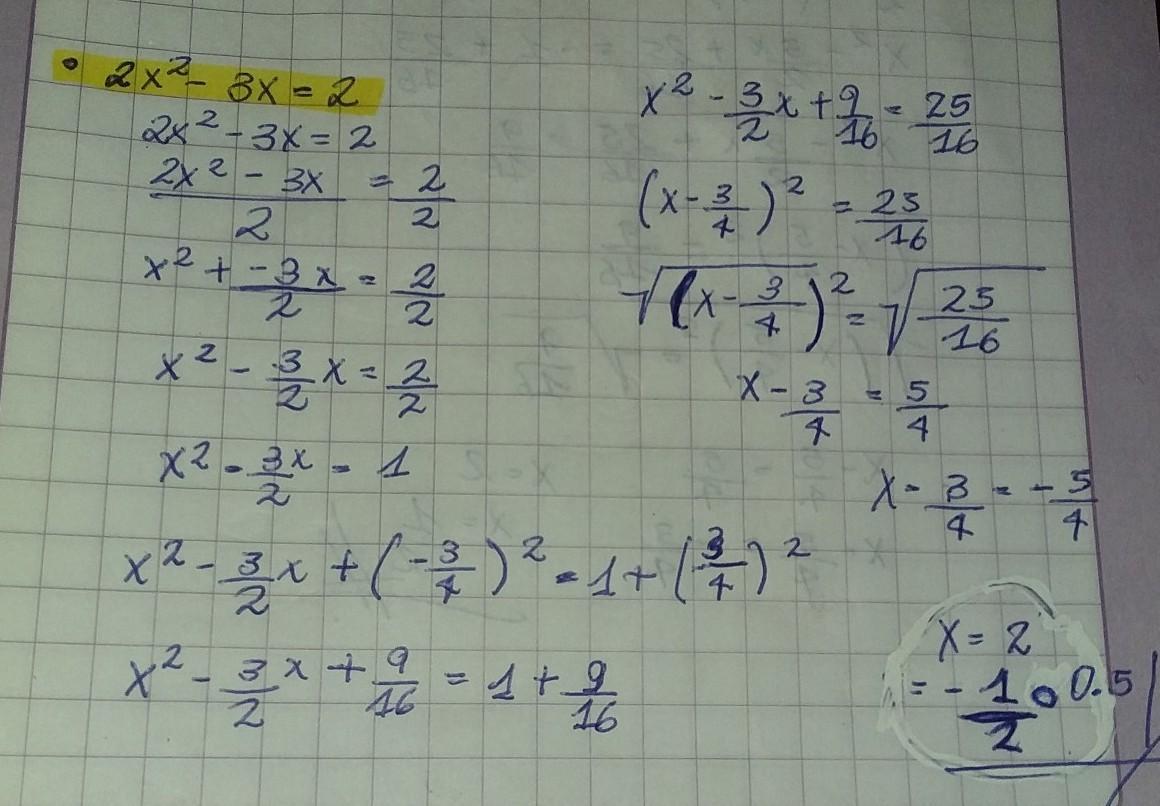 • 2x² - 3x = 2
2x² - 3x = 2
(2x² - 3x)/2 = 2/2
x² + (-3x)/2 = 2/2
x² - 3/2 x = 2/2
x² - 3x/2 = 1
x² - 3/2 x + (-3/4)² = 1 + (-3/4)²
x² - 3/2 x + 9/16 = 1 + 9/16
x² - 3/2 x + 9/16 = 25/16
(x - 3/4)² = 25/16
√(x - 3/4)² = √25/16
x - 3/4 = 5/4
x - 3/4 = -5/4
x = 2
= -1/2 o 0.5